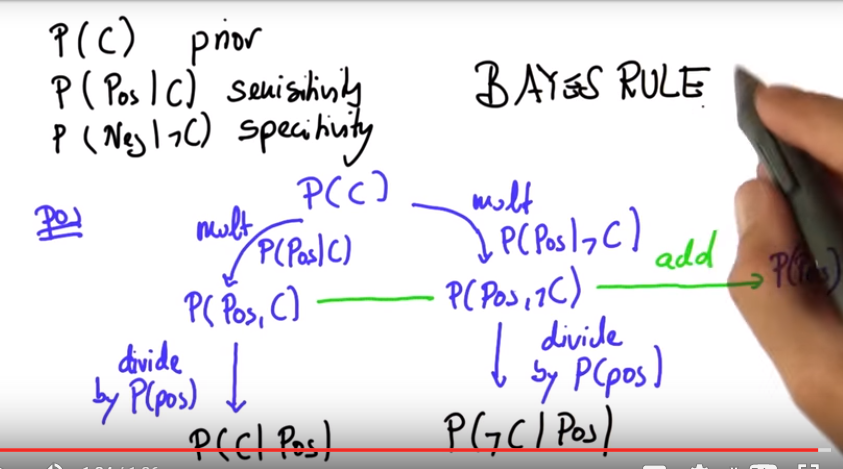 P(C) prior
P(Pos|C) senisitivity
P(Neg|¬C) specitivity
BAYES RULE
Pos
P(C)
mult
P(Pos|C)
mult
P(Pos|¬C)
P(Pos,C)
P(Pos,¬C)
add
P(Pos)
divide
by P(pos)
divide
by P(pos)
P(C|Pos)
P(¬C|Pos)